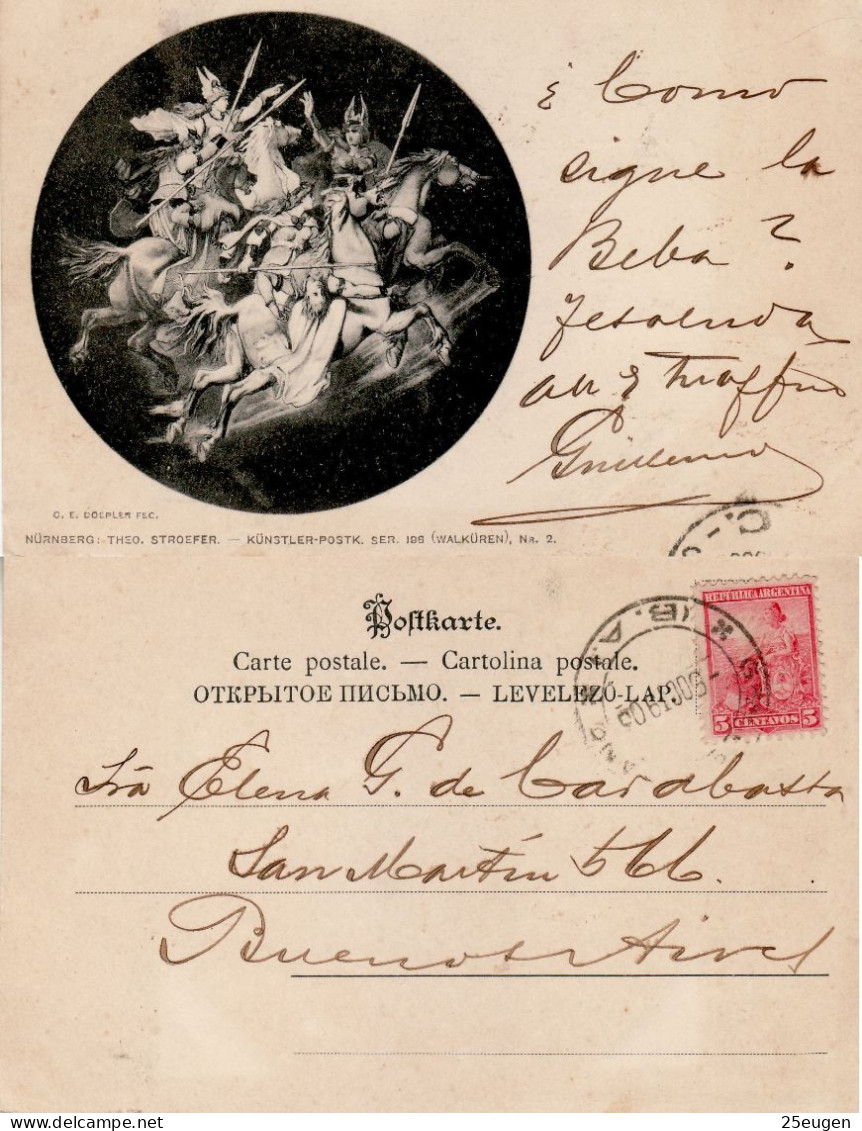 ¿ Como
sigue la
Beba?
au
Guillermo
C. E. DOEPLER FEC.
NÜRNBERG: THEO. STROEFER. — KÜNSTLER-POSTK. SER. 196 (WALKÜREN), Nr. 2.
Postkarte.
Carte postale. — Cartolina postale.
ОТКРЫТОЕ ПИСЬМО. — LEVELEZŐ-LAP.
REPUBLICA ARGENTINA
5 CENTAVOS 5
(B. A.)
Sra Elena G. de Carabassa
San Martín 566.
Buenos Aires
25eugen